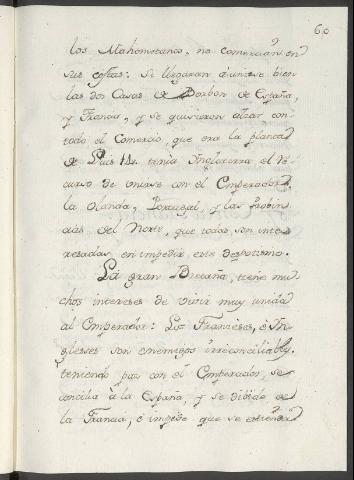 60
los Mahometanos, no comercian en
sus costas: Si llegaran á unirse bien
las dos Casas de Borbon de España,
y Francia, y se quisieron alzar con
todo el Comercio, que era la planta
de Luis 14. tenía Inglaterra el re
curso de unirse con el Emperador,
la Olanda, Portugal, y las Probin
cias del Norte, que todas son inte
resadas en impedir este despotismo.
La gran Bretaña, tiene mu
chos intereses de vivir muy unida
al Emperador: Los Franceses, e In
glesses son enemigos irreconciliables.
teniendo paz con el Emperador, se
concilia à la España, y se dibide de
la Francia, é impide que se extienda